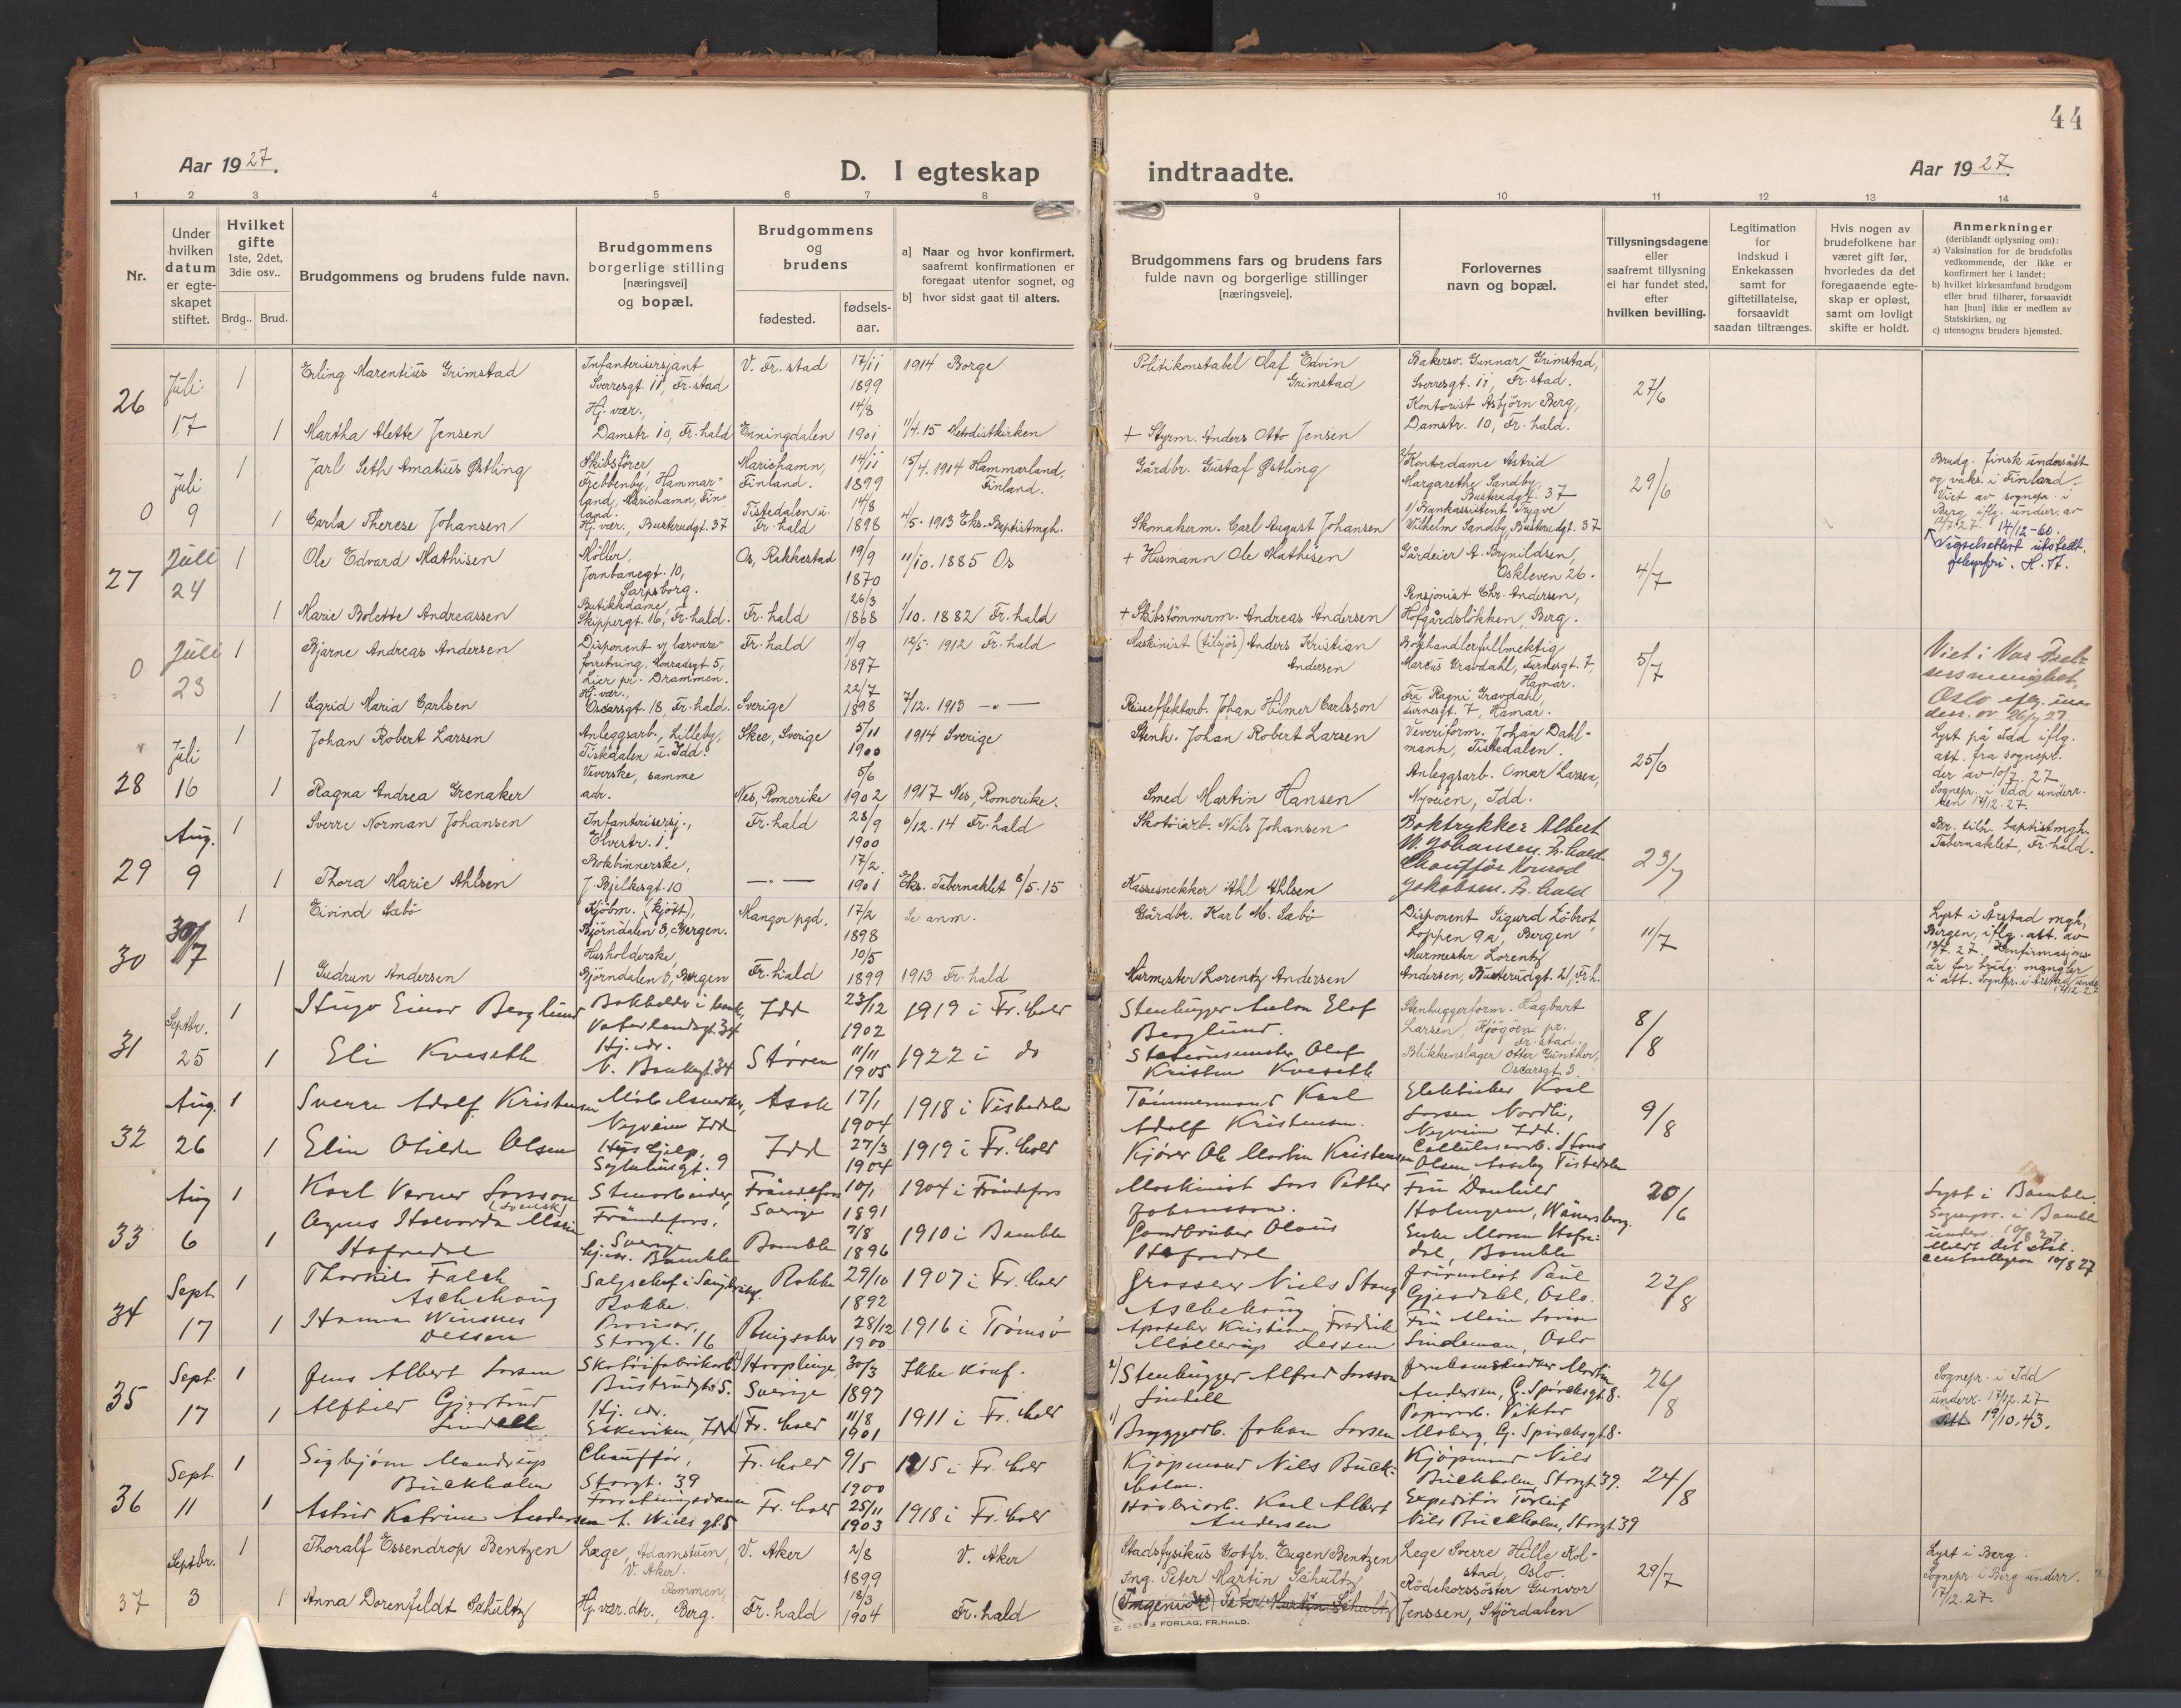 44
Aar 1927.
D. I egteskap
indtraadte.
Aar 1927
1 2 3 4 5 6 7 8 9 10 11 12 13 14
Nr.
Under hvilken datum er egte-skapet stiftet.
Hvilket gifte
1ste, 2det, 3die osv..
Brdg.. Brud.
Brudgommens og brudens fulde navn.
Brudgommens
borgerlige stilling
[næringsvei]
og bopæl.
Brudgommens
og
brudens
fødested.
fødsels-aar.
a] Naar og hvor konfirmert,
saafremt konfirmationen er
foregaat utenfor sognet, og
b] hvor sidst gaat til alters.
Brudgommens fars og brudens fars
fulde navn og borgerlige stillinger
[næringsveie].
Forlovernes
navn og bopæl.
Tillysningsdagene
eller
saafremt tillysning
ei har fundet sted,
efter
hvilken bevilling.
Legitimation
for
indskud i
Enkekassen
samt for
giftetillatelse,
forsaavidt
saadan tiltrænges.
Hvis nogen av
brudefolkene har
været gift før,
hvorledes da det
foregaaende egte-
skap er opløst,
samt om lovligt
skifte er holdt.
Anmerkninger
(deriblandt oplysning om):
a) Vaksination for de brudefolks
vedkommende, der ikke er
konfirmert her i landet;
b) hvilket kirkesamfund brudgom
eller brud tilhører, forsaavidt
han [hun] ikke er medlem av
Statskirken, og
c) utensogns bruders hjemsted.
26
Juli 17
1 Erling Marentius Grimstad
Infanterisersjant
Sverresgt. 11, Fr.stad
V. Fr.stad
17/11 1899
1914 Borge
Politikonstabel Olaf Edvin
Grimstad
Bakersv. Gunnar Grimstad,
Sverresgt. 11, Fr.stad.
27/6
1 Martha Alette Jensen
Hj. vær.,
Damstr. 10, Fr.hald
Enningdalen
14/8 1901
11/4.15 Metodistkirken
+ Styrm. Anders Otto Jensen
Kontorist Asbjörn Berg,
Damstr. 10, Fr.hald.
0
Juli 9
1 Jarl Seth Amatius Østling
Skibsförer,
Frebbenby, Hammar-
land, Mariehamn, Fin-
land.
Mariehamn,
Finland.
14/11 1899
15/4.1914 Hammarland,
Finland.
Gårdbr. Gustaf Østling
2/ Kontordame Astrid
Margarethe Sandby,
Busterudgt. 37
29/6
Brudg. finsk undersått
og vaks. i Finland.
Viet av sognepr. i
Berg iflg. underr. av
12/7.27. 14/12-60.
Vigselsattest utstedt.
gebyrfri. H.A.
1 Carla Therese Johansen
Hj. vær., Busterudgt. 37
Tistedalen u.
Fr.hald
14/8 1898
4/5.1913 Eks. Baptistmgh.
Skomakerm. Carl August Johansen
1/ Bankassistent Trygve
Vilhelm Sandby, Busterudgt. 37
27
Juli 24
1 Ole Edvard Mathisen
Møller,
Jernbanegt. 10,
Sarpsborg.
Os, Rakkestad
19/9 1870
11/10.1885 Os
+ Husmann Ole Mathisen
Gårdeier A. Brynildsen,
Oskleven 26.
4/7
1 Marie Bolette Andreassen
Butikkdame,
Skippergt. 16, Fr.hald.
Fr.hald
26/3 1868
1/10.1882 Fr.hald
+ Skibstömmerm. Andreas Andersen
Pensjonist Chr. Andersen,
Hofgårdslökken, Berg.
0
Juli 23
1 Bjarne Andreas Andersen
Disponent v/ lærvare-
forretning, Konradsgt. 5,
Lier pr. Drammen.
Fr.hald
11/9 1897
12/5.1912 Fr.hald
Maskinist (tilsjös) Anders Kristian
Andersen
Bokhandlerfullmektig
Marcus Gravdahl, Turnergt. 7,
Hamar.
5/7
Viet i Vor Frel-
sers menighet,
Oslo iflg. un-
derr. av 26/7 27
1 Sigrid Maria Carlsen
Hj. vær.,
Oscarsgt. 18, Fr.hald.
Sverige
22/7 1898
7/12.1913 —"—
Johan Hilmer Carlsson
Fru Ragni Gravdahl,
Turnergt. 7, Hamar.
28
Juli 16
1 Johan Robert Larsen
Anleggsarb., Lilleby,
Tistedalen u. Idd.
Skee, Sverige
5/11 1900
1914 Sverige
Stenh. Johan Robert Larsen
Veveriform. Johan Dahl-
mann, Tistedalen
25/6
Lyst på Idd iflg.
att. fra sognepr.
der av 10/7.27
Sognepr. i Idd underr.
den 17/12.27.
1 Ragna Andrea Grenaker
Veverske, samme
adr.
Nes, Romerike
5/6 1902
1917 Nes, Romerike.
Smed Martin Hansen
Anleggsarb. Omar Larsen,
Nyveien, Idd.
29
Aug. 9
1 Sverre Norman Johansen
Infanterisersj.,
Elvestr. 1.
Fr.hald
28/9 1900
6/12.14 Fr.hald
Skotöiarb. Nils Johansen
Boktrykker Albert
W. Johansen. Fr.hald
23/7
Br. tilh. baptistmgh.
Tabernaklet, Fr.hald.
1 Thora Marie Ahlsen
Bokbinnerske,
J. Bjelkesgt. 10
—"—
17/2 1901
Eks. Tabernaklet 8/5.15
Kassesnekker Ahl Ahlsen
Chauffør Konrad
Jakobsen. Fr.hald
30
30/7
1 Eivind Sæbö
Kjöbm. (kjött),
Björndalen 3, Bergen.
Manger pgd.
17/2 1898
Se anm.
Gårdbr. Karl M. Sæbö
Disponent Sigurd Löbrot,
Loppen 9a, Bergen
11/7
Lyst i Årstad mgh.,
Bergen, iflg. att. av
13/7.27. Konfirmasjons-
år for brudg. mangler
i att. Sognepr. i Årstad underr.
17/12.27
1 Gudrun Andersen
Husholderske,
Björndalen 3, Bergen
Fr.hald
10/5 1899
1913 Fr.hald
Murmester Lorentz Andersen
Murmester Lorentz
Andersen, Busterudgt. 21, Fr.h.
31
Septbr. 25
1 Hugo Einar Berglund
Bokholder i bank,
Vaterlandsgt. 34
Idd
23/12 1902
1919 i Fr.hald
Stenhugger Anton Elof
Berglund.
Stenhuggerform. Hagbart
Larsen, Kjögöen pr.
Fr.stad.
8/8
1 Eli Kveseth
Hj. vær.
V. Bankegt. 34
Støren
11/11 1905
1922 i do
Stationsmester Olaf
Kristen Kveseth
Blikkenslager Otter Günther,
Oscarsgt. 3.
32
Aug. 26
1 Sverre Adolf Kristensen
Nyveien Idd
Asak
17/1 1904
1918 i Tistedalen
Tømmermand Karl
Adolf Kristensen.
Elektriker Karl
Larsen Nordli,
Nyveien Idd.
9/8
1 Elin Otilde Olsen
Hushjelp,
Idd
27/3 1904
1919 i Fr.hald
Kjører Ole Martin Kristensen
Cellulosearb. Hans
Olsen Aaseby Tistedalen
33
Aug 6
1 Karl Verner Larsson
(svensk)
Stenarbeider,
Frändefors.
Sverige
Frändefors
Sverige
10/1 1891
1904 i Frändefors
Maskinist Lars Petter
Johansson.
Holmgren, Wänersborg.
20/6
Lyst i Bamble.
Sognepr. i Bamble
underr. 10/8 27.
Meldt det stat.
centralbyrå 10/8 27
1 Agnes Halvorda Marie
Hafredal
hj. vær. Bamble
Bamble
7/8 1896
1910 i Bamble
Gaardbruker Olaus
Hafredal
Enke Maren Hafre-
dal, Bamble
34
Sept 17
1 Thorkil Falch
Aschehoug
Salgschef i Saugbrugs.
Rokke.
Rokke
29/10 1892
1907 i Fr.hald
Grosserer Niels Stang
Aschehoug
Journalist Paul
Gjesdahl, Oslo.
22/8
1 Hanna Winsnes
Dessen
Provisor,
Storgt. 16
Ringsaker
28/12 1900
1916 i Tromsø
Apoteker Kristian Fredrik
Møllerup Dessen
Lindeman, Oslo
35
Sept. 17
1 Jens Albert Larsen
Skotöifabrikarb.
Sverige
30/3 1897
Ikke konf.
2/ Stenhugger Alfred Larsson
Lindell
Andersen, G. Spireaksgt 8.
26/8
Sognepr. i Idd
underr. 17/12.27
Att. 19/10.43.
1 Alfhild Gjertrud
Lindell
Hj. vær.
Eskeviken, Idd
Fr.hald
11/8 1901
1911 i Fr.hald
1/ Bryggearb. Johan Larsen
Papirarb. Viktor
Moberg,
36
Sept. 11
1 Sigbjørn Mandrup
Buckholm
Chauffør,
Storgt. 39
Fr.hald
9/5 1900
1915 i Fr.hald
Kjøpmand Nils Buck-
holm.
Kjøpmand Nils
Buckholm, Storgt 39.
24/8
1 Astrid Katrine Andersen
Forretningsdame
A. Wielsgt. 5
Fr.hald
25/11 1903
1918 i Fr.hald
Høvleriarb. Karl Albert
Andersen
Expeditør Torleif
Nils Buckholm, Storgt 39
37
Septbr. 3
1 Thoralf Essendrop Bentzen
Læge, Adamstuen,
V. Aker.
V. Aker
2/8 1899
V. Aker
Stadsfysikus Gotfr. Eugen Bentzen
Lege Sverre Hille Kol-
stad, Oslo.
29/7
Lyst i Berg.
Sognepr. i Berg underr.
17/12.27.
1 Anna Dorenfeldt Schultz
Remmen,
Hj. vær. dtr., Berg.
Fr.hald
18/3 1904
Fr.hald
Ing. Peter Martin Schultz
(Ingeniør) Peter Martin Schultz
Rödekorssöster Gunvor
Jenssen, Stjördalen
FORLAG, FR.HALD.